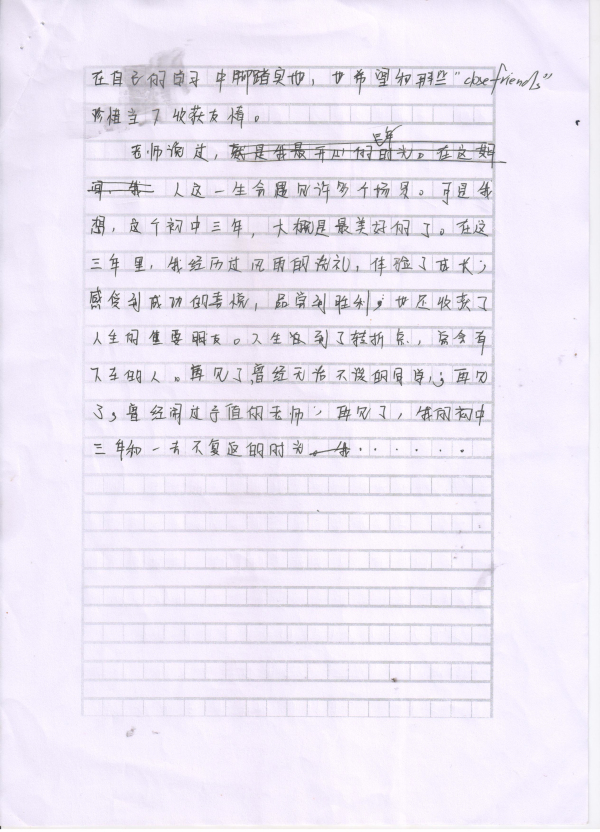 在自己的日子中脚踏实地，也希望和那些"close friends"
珍惜当下收获友情。
老师说过，就是我最开心的时光。在这期
间，我 人这一生会遇见许多个场景。可是我
想，这个初中三年，大概是最美好的了。在这
三年里，我经历过风雨的洗礼，体验了成长；
感受到成功的喜悦，品尝到胜利；也还收获了
人生的重要朋友。人生没到了转折点，总会有
人走的人。再见了曾经无话不谈的同学；再见
了，曾经闹过矛盾的老师；再见了，我的初中
三年和一去不复返的时光。我······